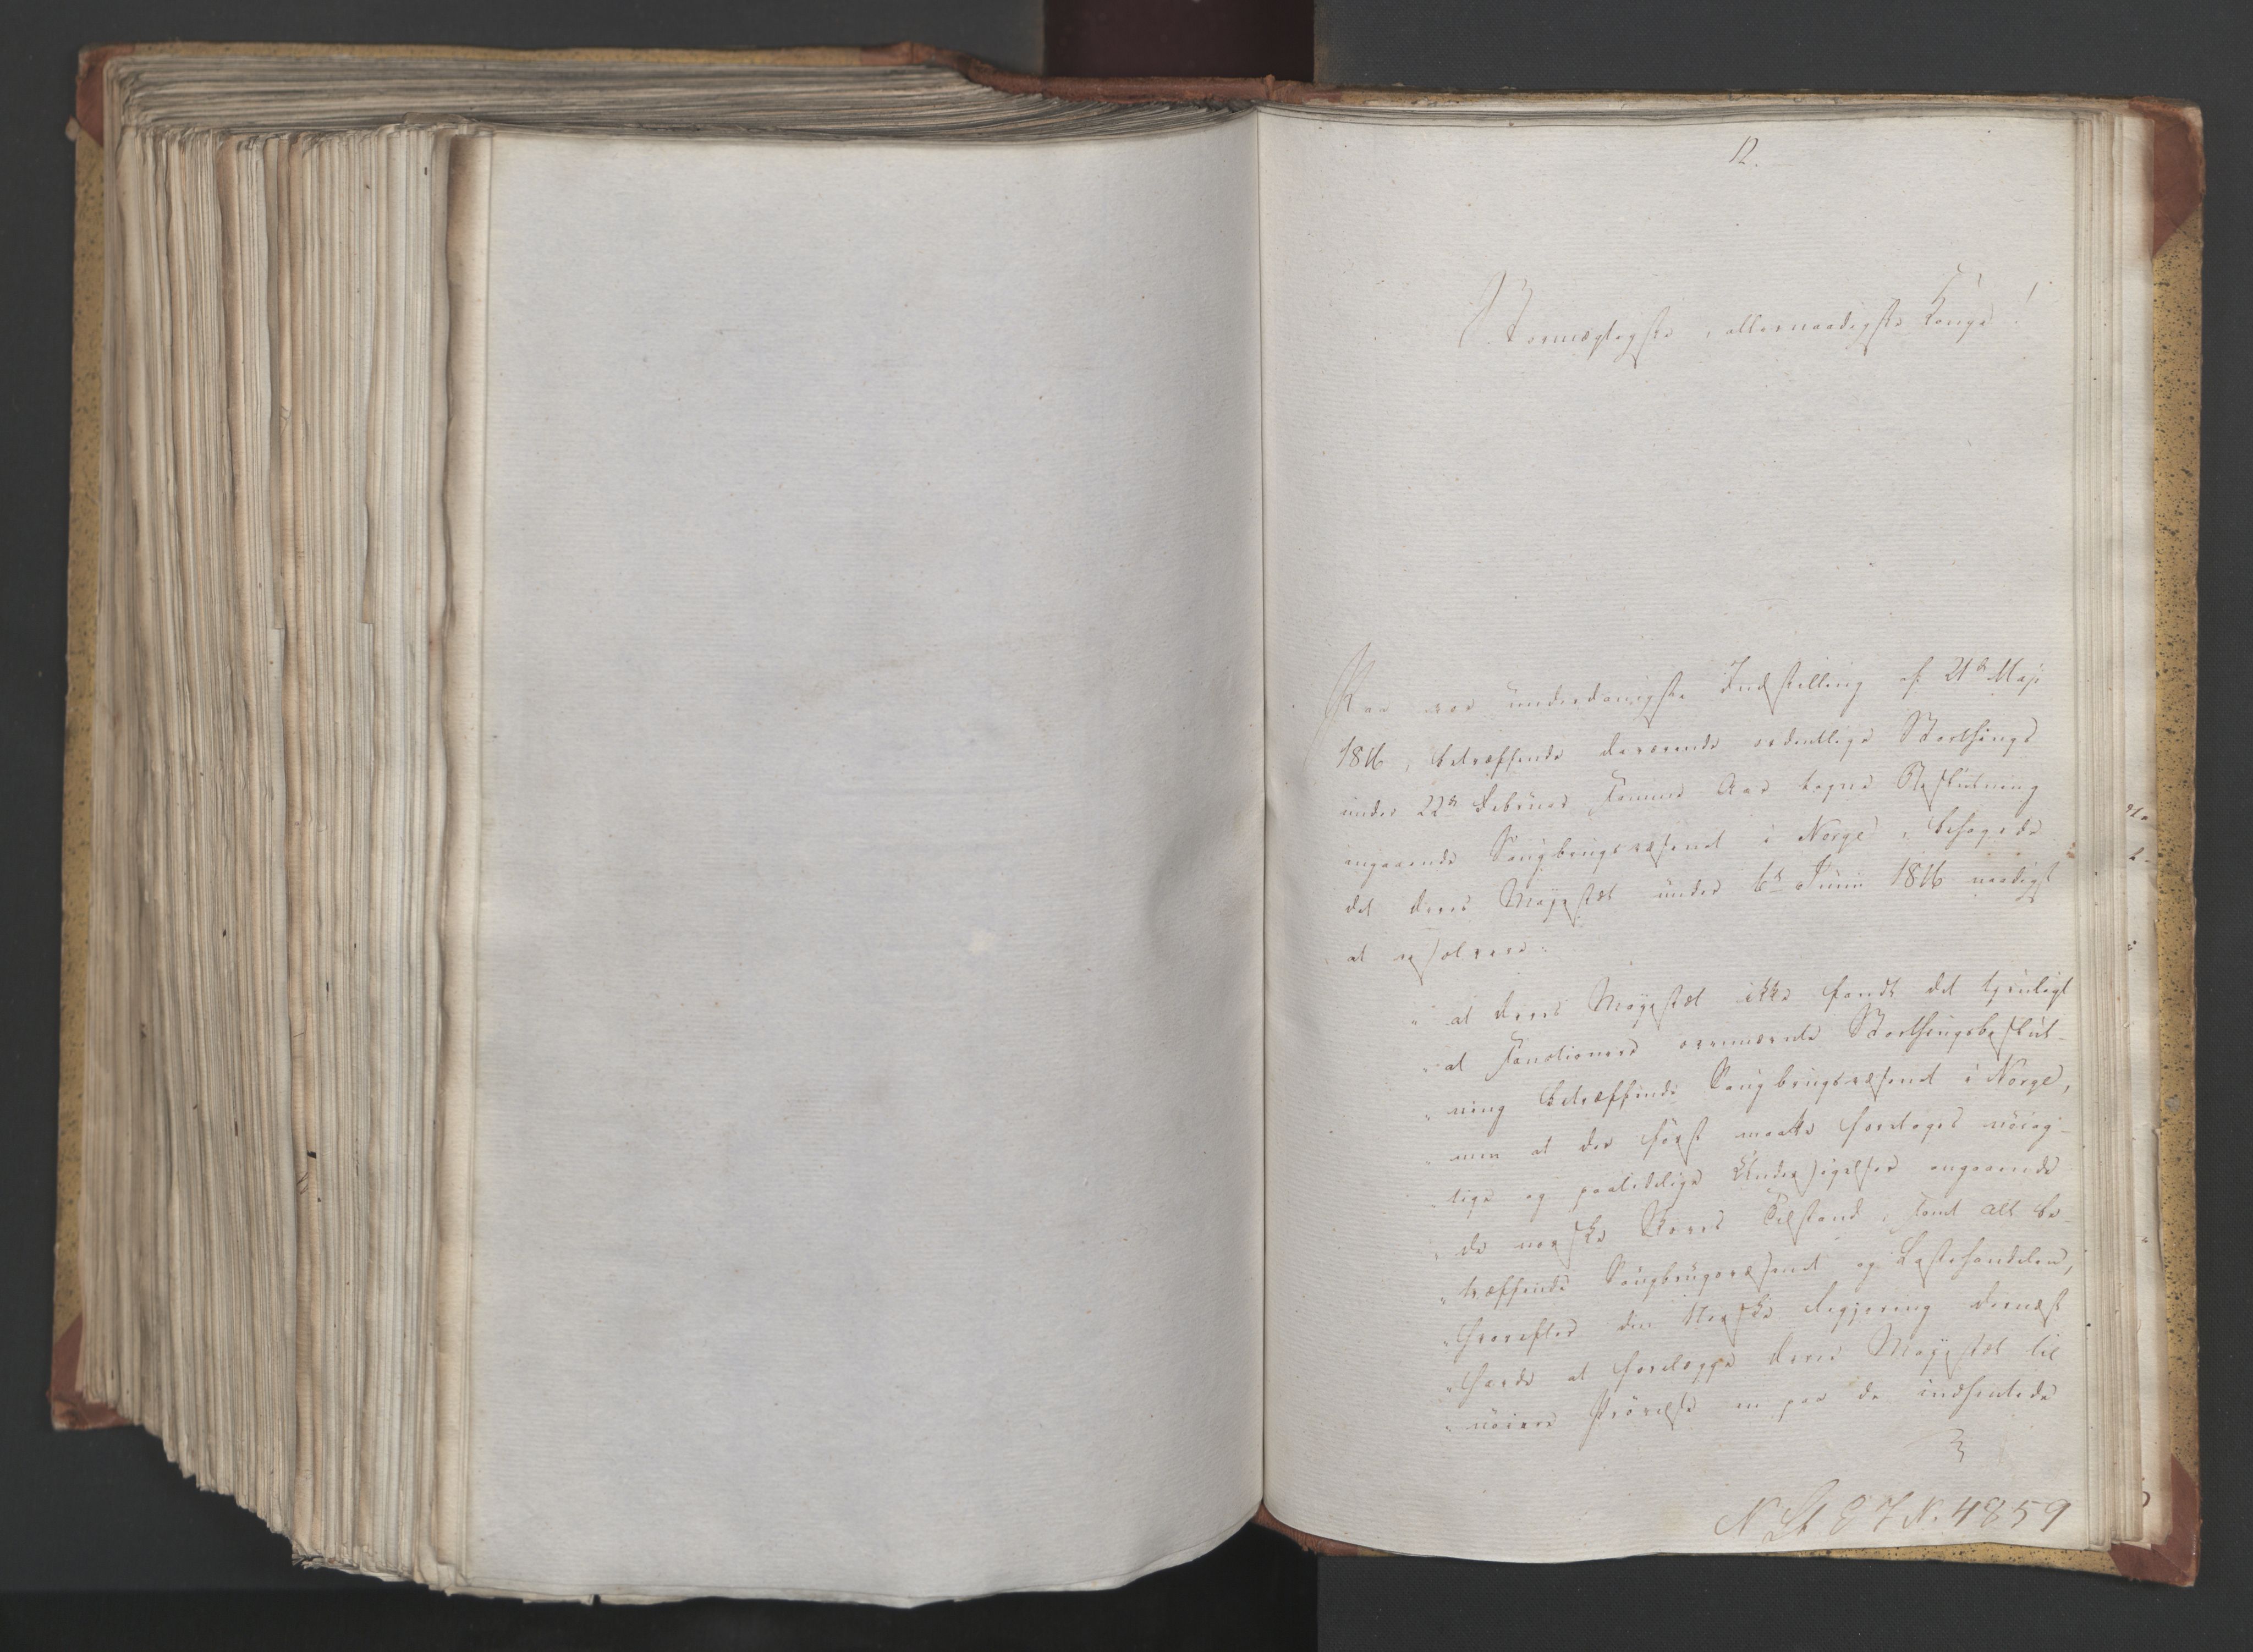 12.
Stormægtigste, allernaadigste Konge!
Paa vor underdanigste Indstilling af 21de Maji
1816, betræffende daværende ordentlige Storthings
under 22de Februar samme Aar tagne Beslutning
angaaende Saugbrugsvæsenet i Norge, behagede
det Deres Majestæt under 6te Junii 1816 naadigst
at resolvere:
"at Deres Majestæt ikke fandt det tjenligt
"at sanctionere ovennævnte Storthingsbeslut-
"ning betræffende Saugbrugsvæsenet i Norge,
"men at der først maatte foretages nöiag-
"tige og paalidelige Undersögelser angaaende
"de norske Skoves Tilstand, samt alt be-
"træffende Saugbrugsvæsenet og Lastehandelen,
"hvorefter den Norske Regjering dernæst
"havde at forelægge Deres Majestæt til
"nöiere Prövelse en paa de indhentede
N St E J N. 4859